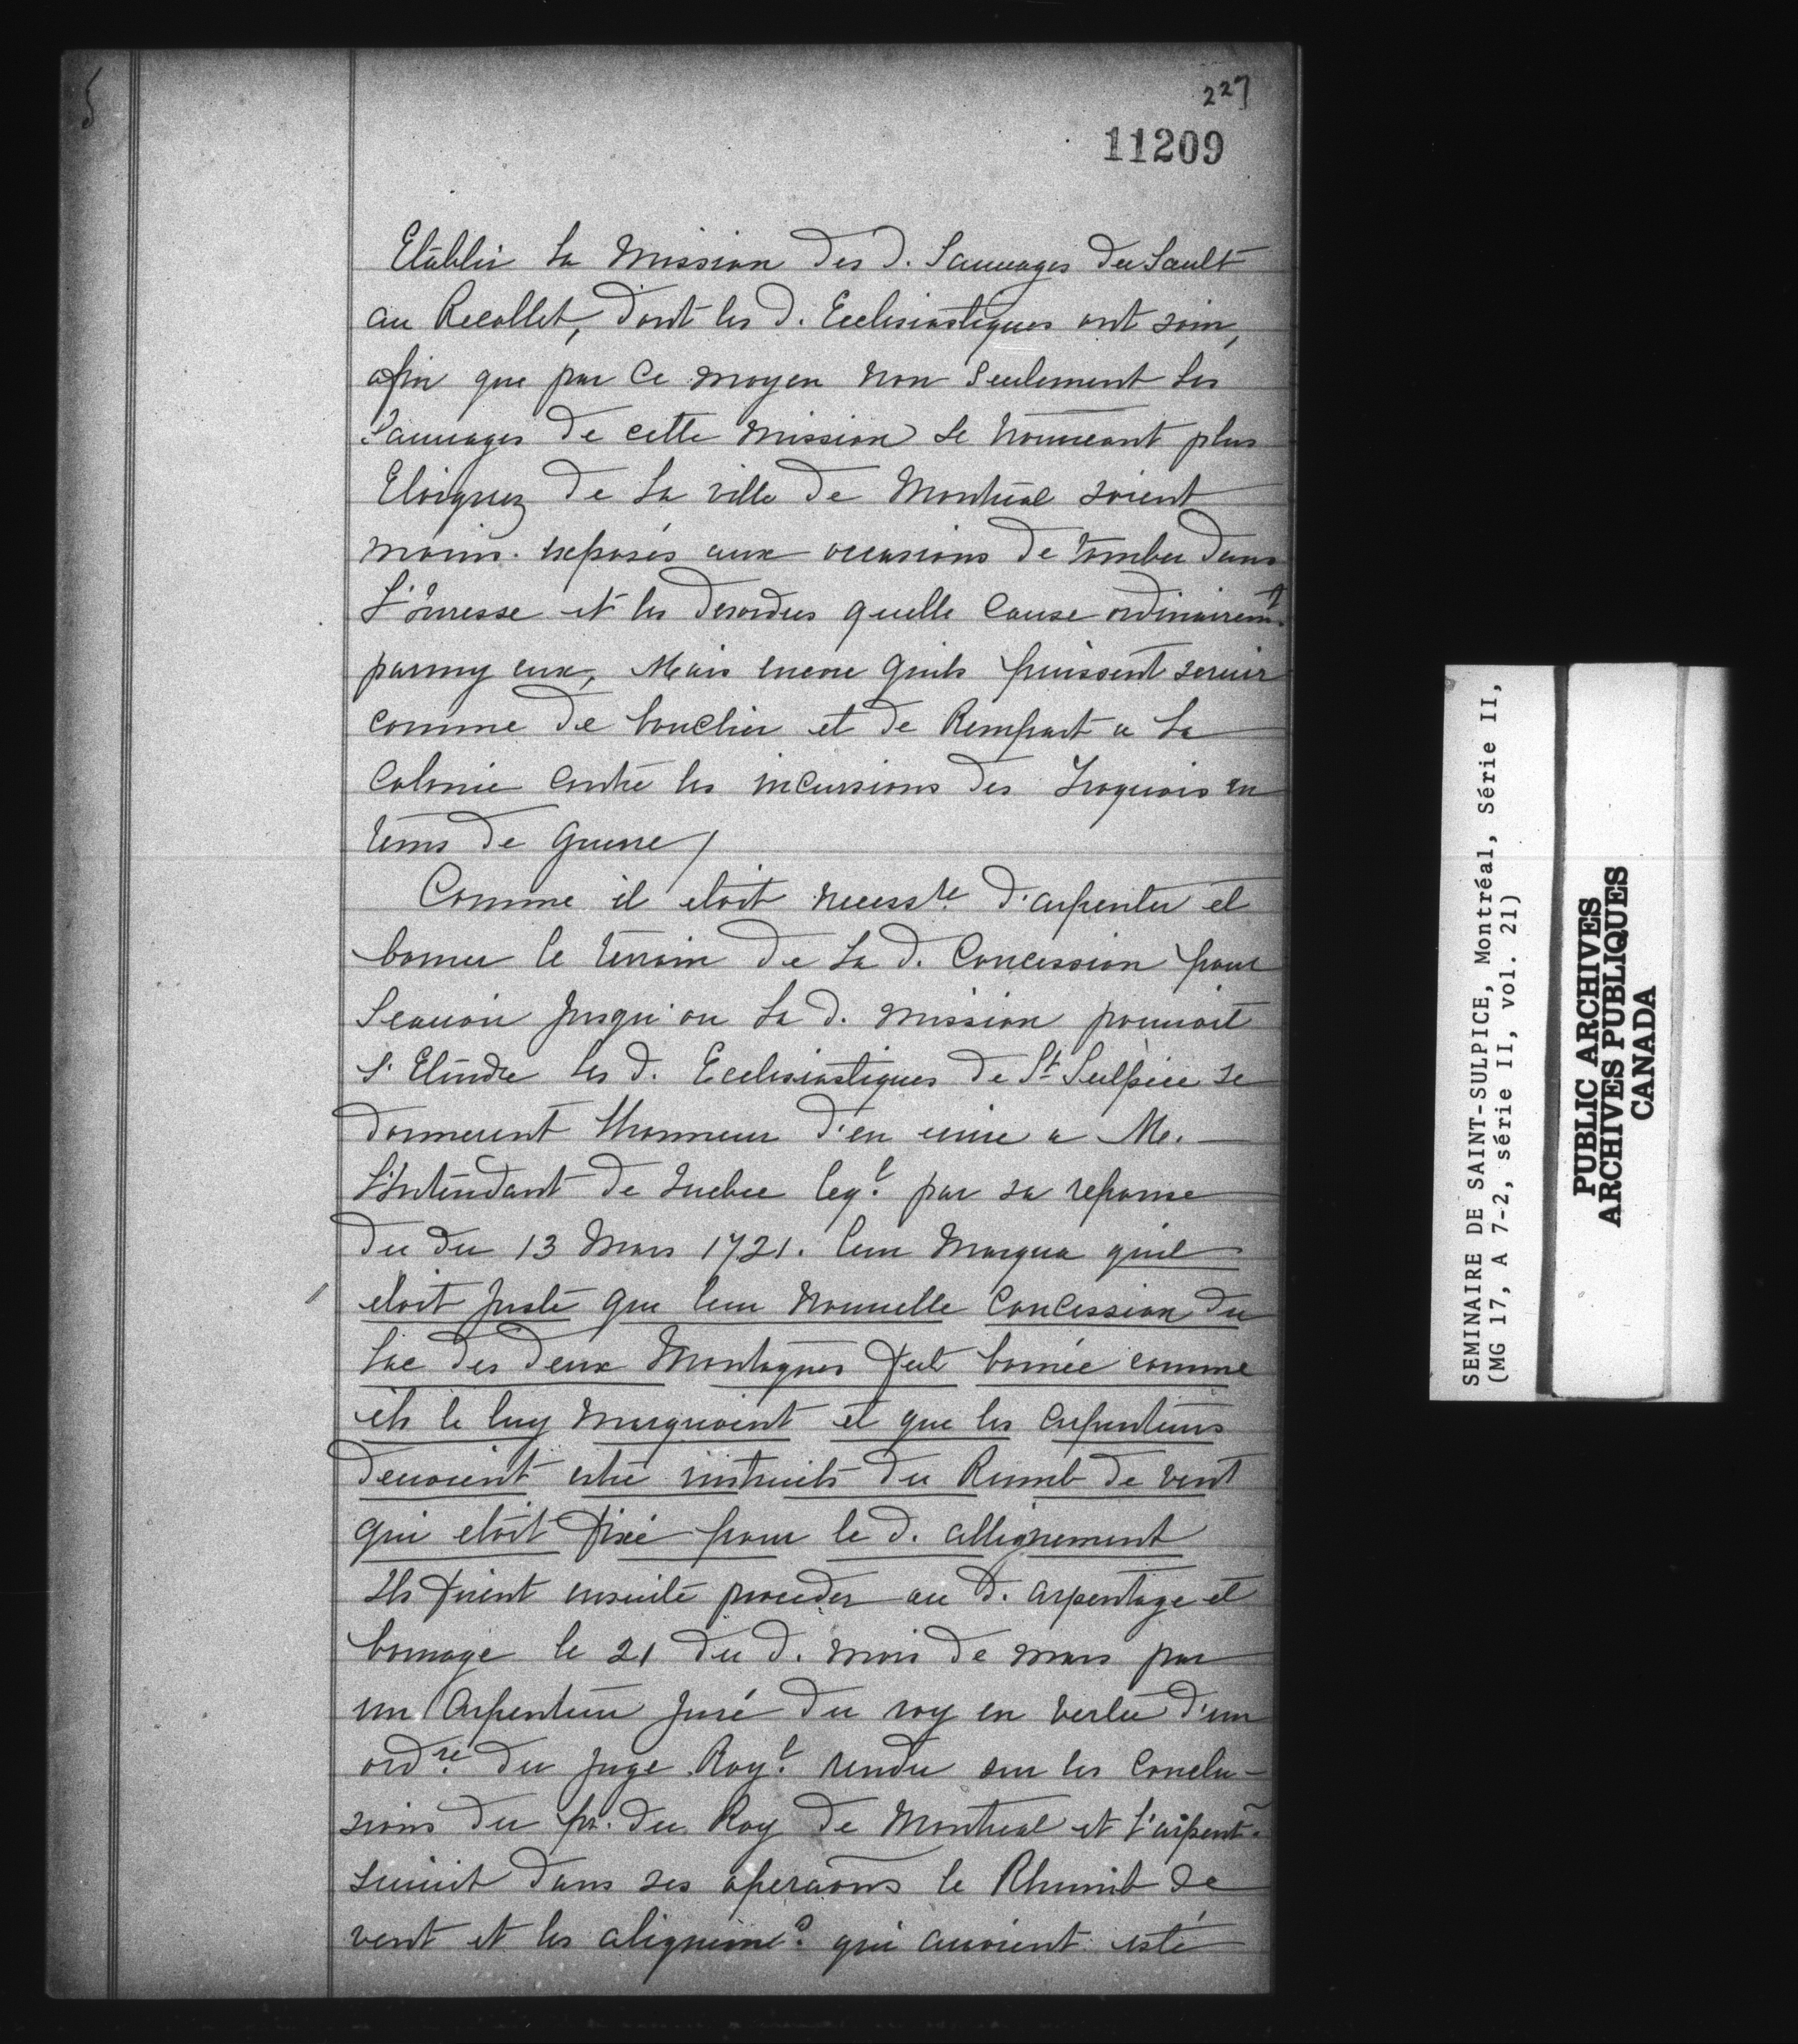 5
227
11209
Etablir La Mission des d. Sauuages du Sault
au Recollet, dont les d. Ecclesiastiques ont soin,
afin que par Ce moyen non Seulement Les
Sauuages de cette Mission se trouueant plus
Eloignez de La ville de Montreal soient
moins exposés aux occasions de tomber dans
L'Iuresse et les desordres quelle Cause ordinairemt
parmy eux, Mais encore quils puissent seruir
comme de bouclier et de Rempart a La
Colonie Contre les incursions des Iroquois en
tems de Guerre /
Comme il etoit necessre d'arpenter et
borner le terrain de La d. Concession pour
Scauoir Jusqu'ou La d. mission pouuoit
s'Etendre Les d. Ecclesiastiques de St Sulpice se
donnerent Lhonneur d'en ecrire a Mr.
L'Intendant de Quebec leql. par sa reponse
du du 13 Mars 1721. leur Marqua quil
etoit Juste que leur Nouuelle Concession du
Lac des deux Montagnes fut bornée comme
ils le luy marquoient et que les arpenteurs
deuoient estre instruits du Rumb de vent
qui etoit fixé pour le d. allignement
Ils firent ensuite proceder au d. arpentage et
bornage le 21 du d. mois de mars par
un Arpenteur Juré du roy en vertu d'un
ordre du Juge Royl. rendu sur les Conclu-
sions du pr. du Roy de Montreal et l'arpentr.
suiuit dans ses operaons le Rhumb de
vent et les alignemens. qui auoient esté
SEMINAIRE DE SAINT-SULPICE, Montréal, Série II,
(MG 17, A 7-2, série II, vol. 21)
PUBLIC ARCHIVES
ARCHIVES PUBLIQUES
CANADA